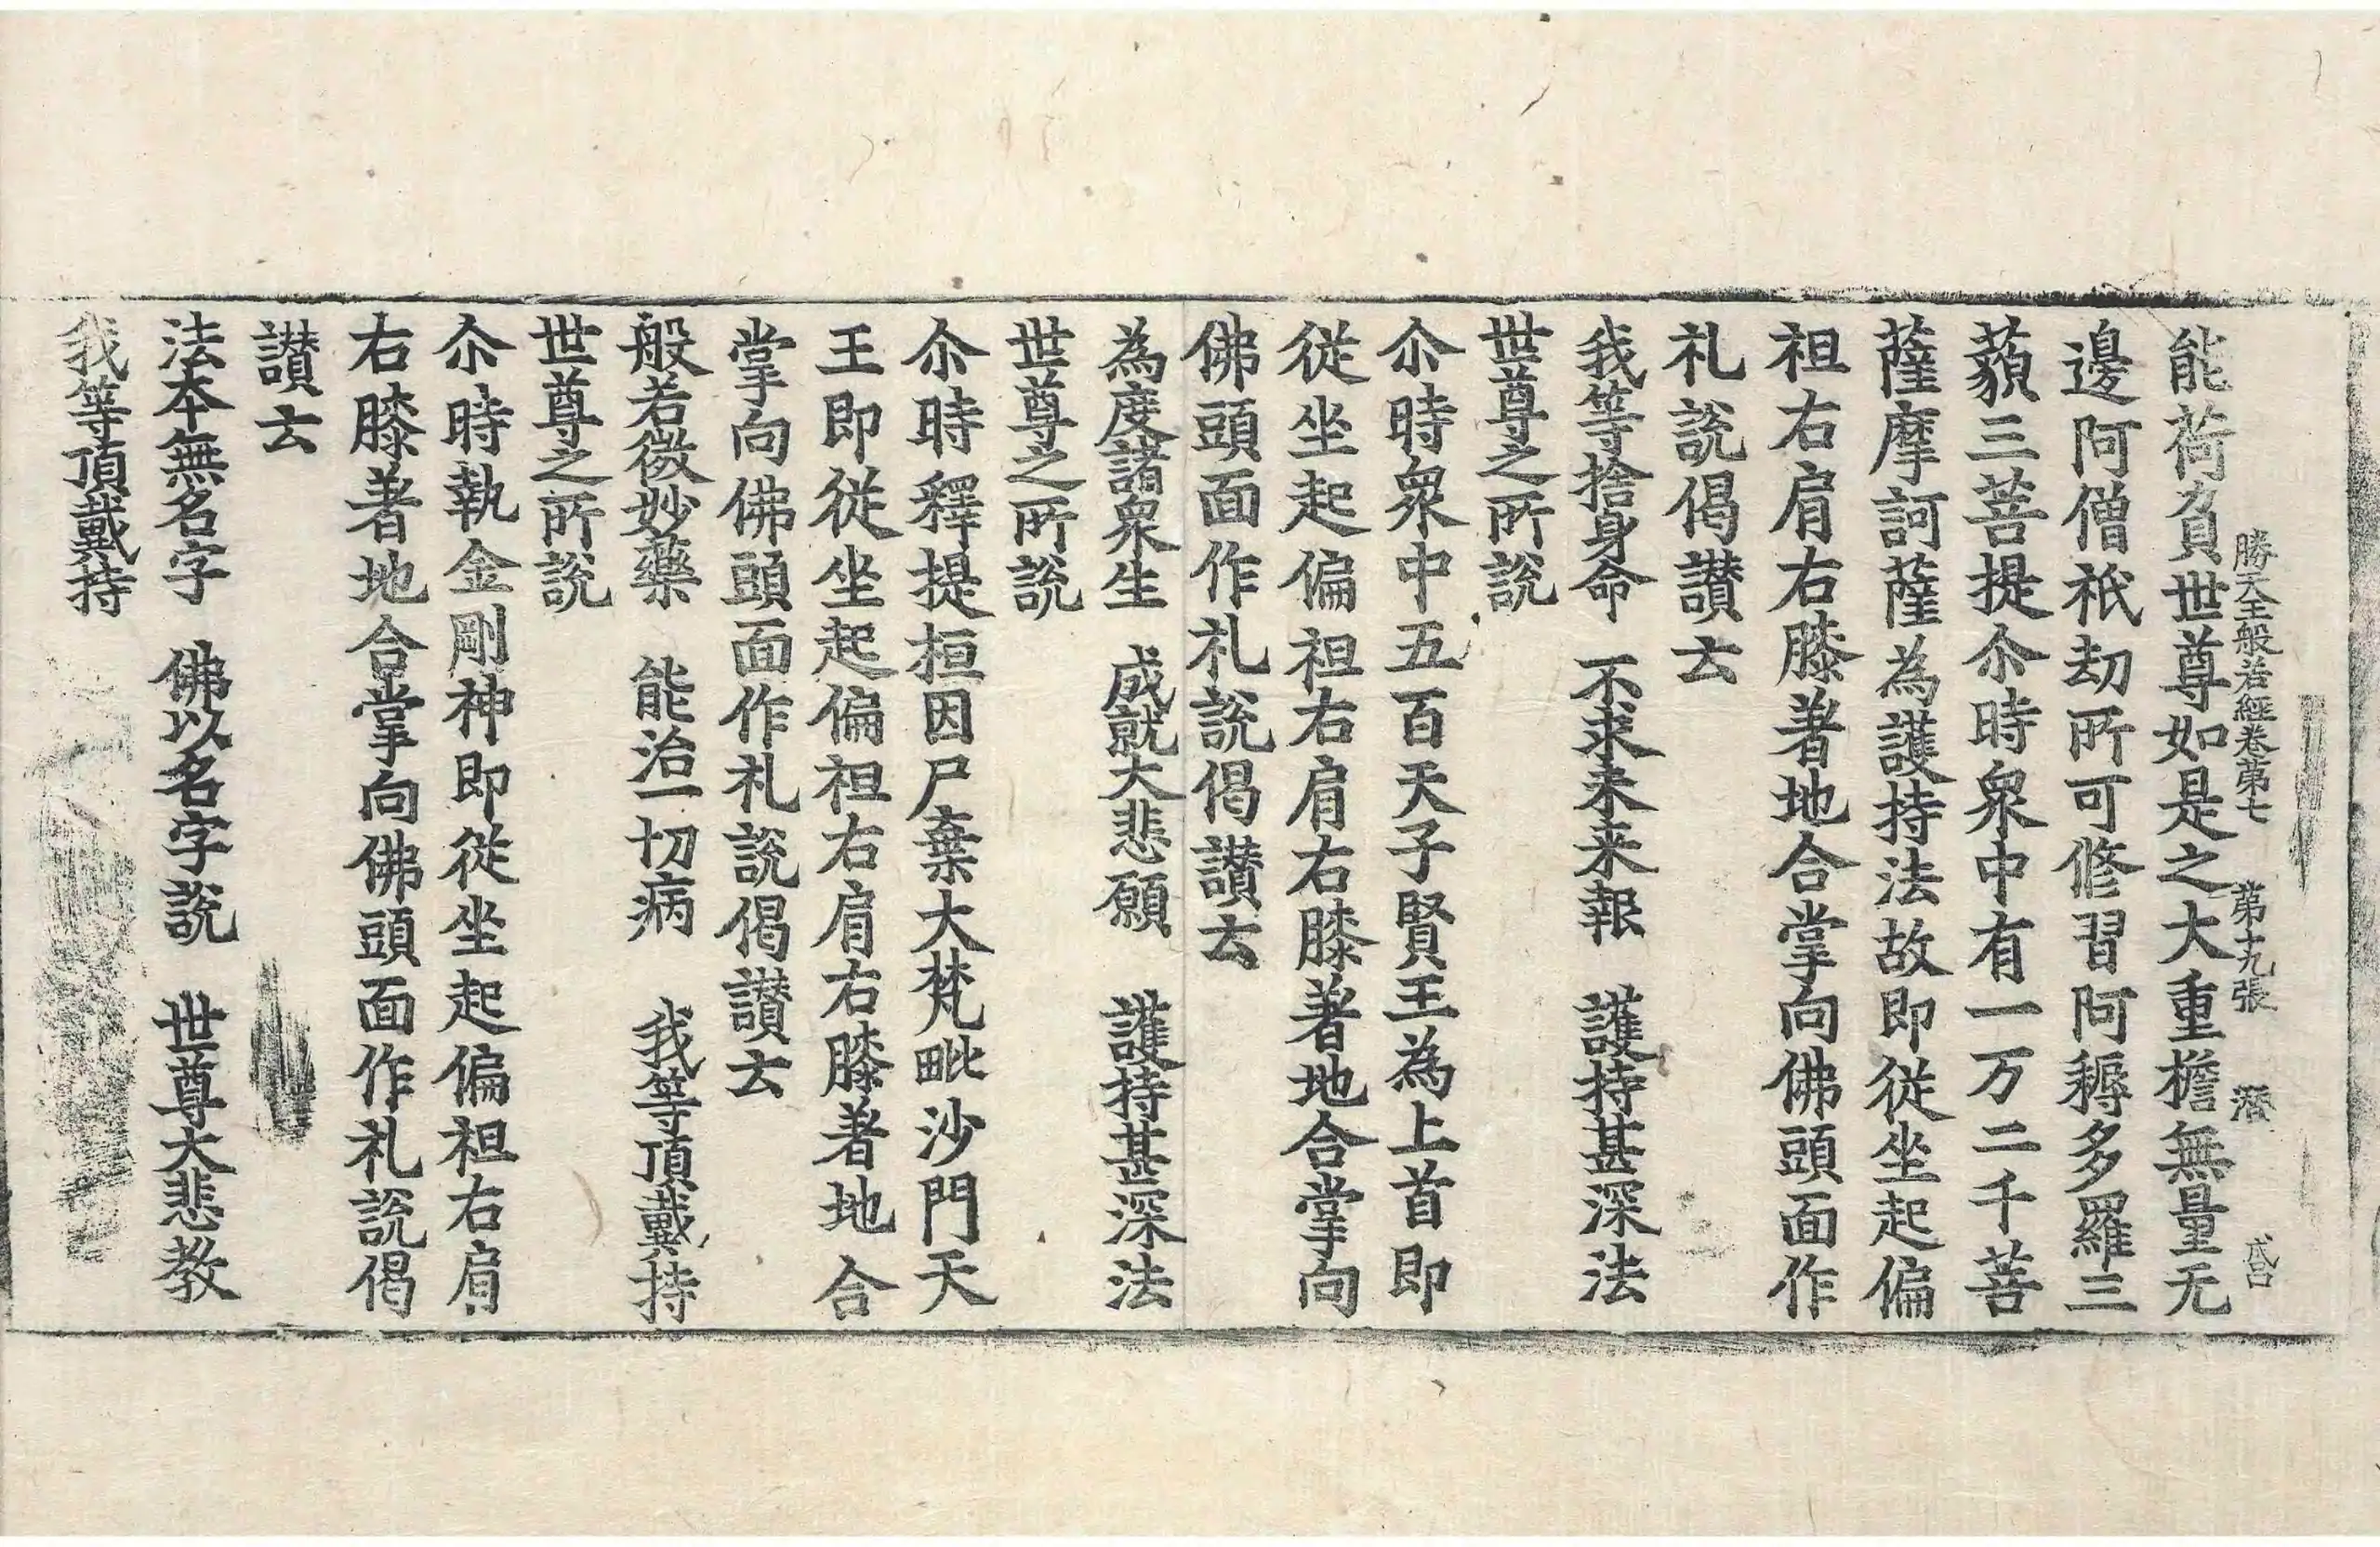 勝天王般若經卷第七 第十九張
能荷負世尊如是之大重檐無量无
邊阿僧祇劫所可修習阿耨多羅三
藐三菩提尒時衆中有一万二千菩
薩摩訶薩為護持法故即從坐起偏
袒右肩右膝著地合掌向佛頭面作
礼說偈讃云
我等捨身命 不求未来報 護持甚深法
世尊之所說
尒時衆中五百天子賢王為上首即
從坐起偏袒右肩右膝著地合掌向
佛頭面作礼說偈讃云
為度諸衆生 成就大悲願 護持甚深法
世尊之所說
尒時釋提桓因尸棄大梵毗沙門天
王即從坐起偏袒右肩右膝著地合
掌向佛頭面作礼說偈讃云
般若微妙藥 能治一切病 我等頂戴持
世尊之所說
尒時執金剛神即從坐起偏袒右肩
右膝著地合掌向佛頭面作礼說偈
讃云
法本無名字 佛以名字說 世尊大悲教
我等頂戴持